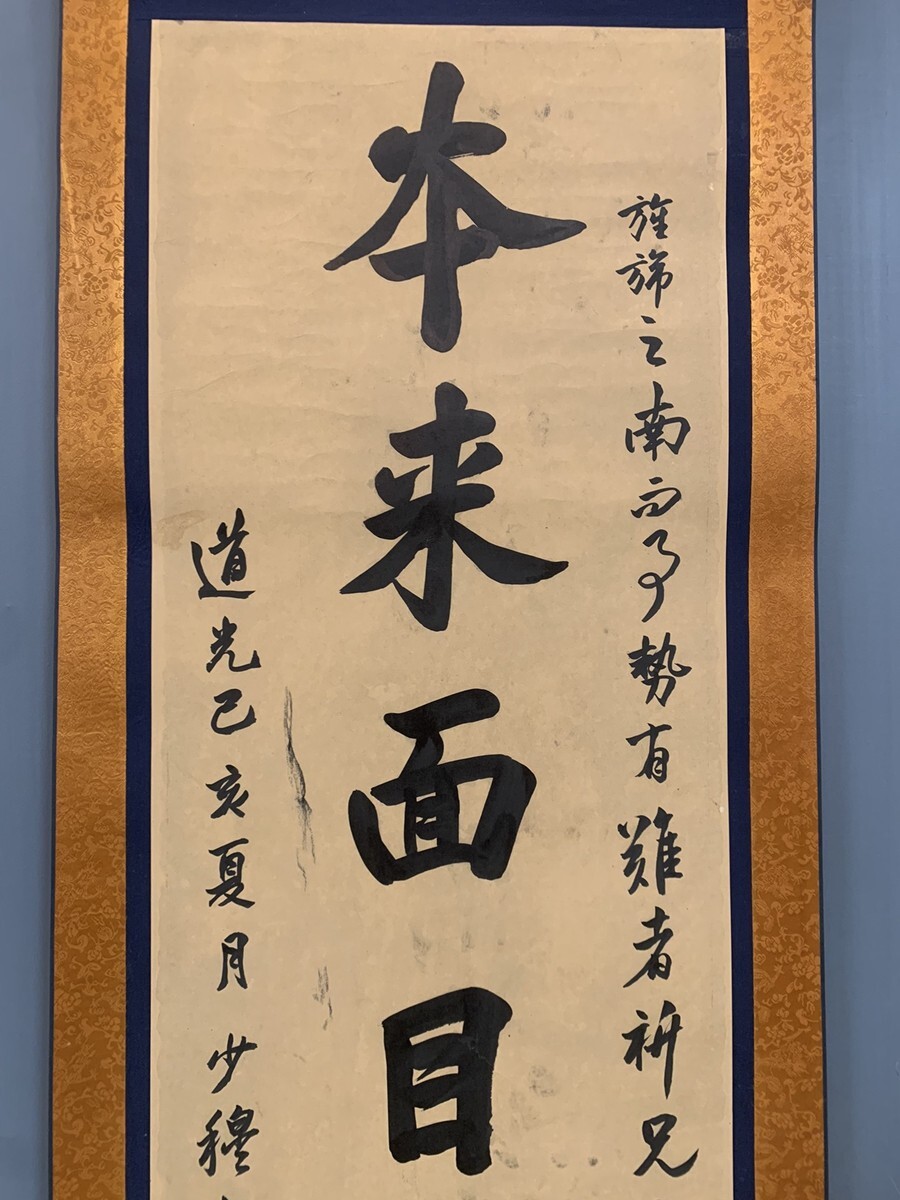 旌旆之南而事勢有難者祈兄
本来面目
道光己亥夏月 少穆